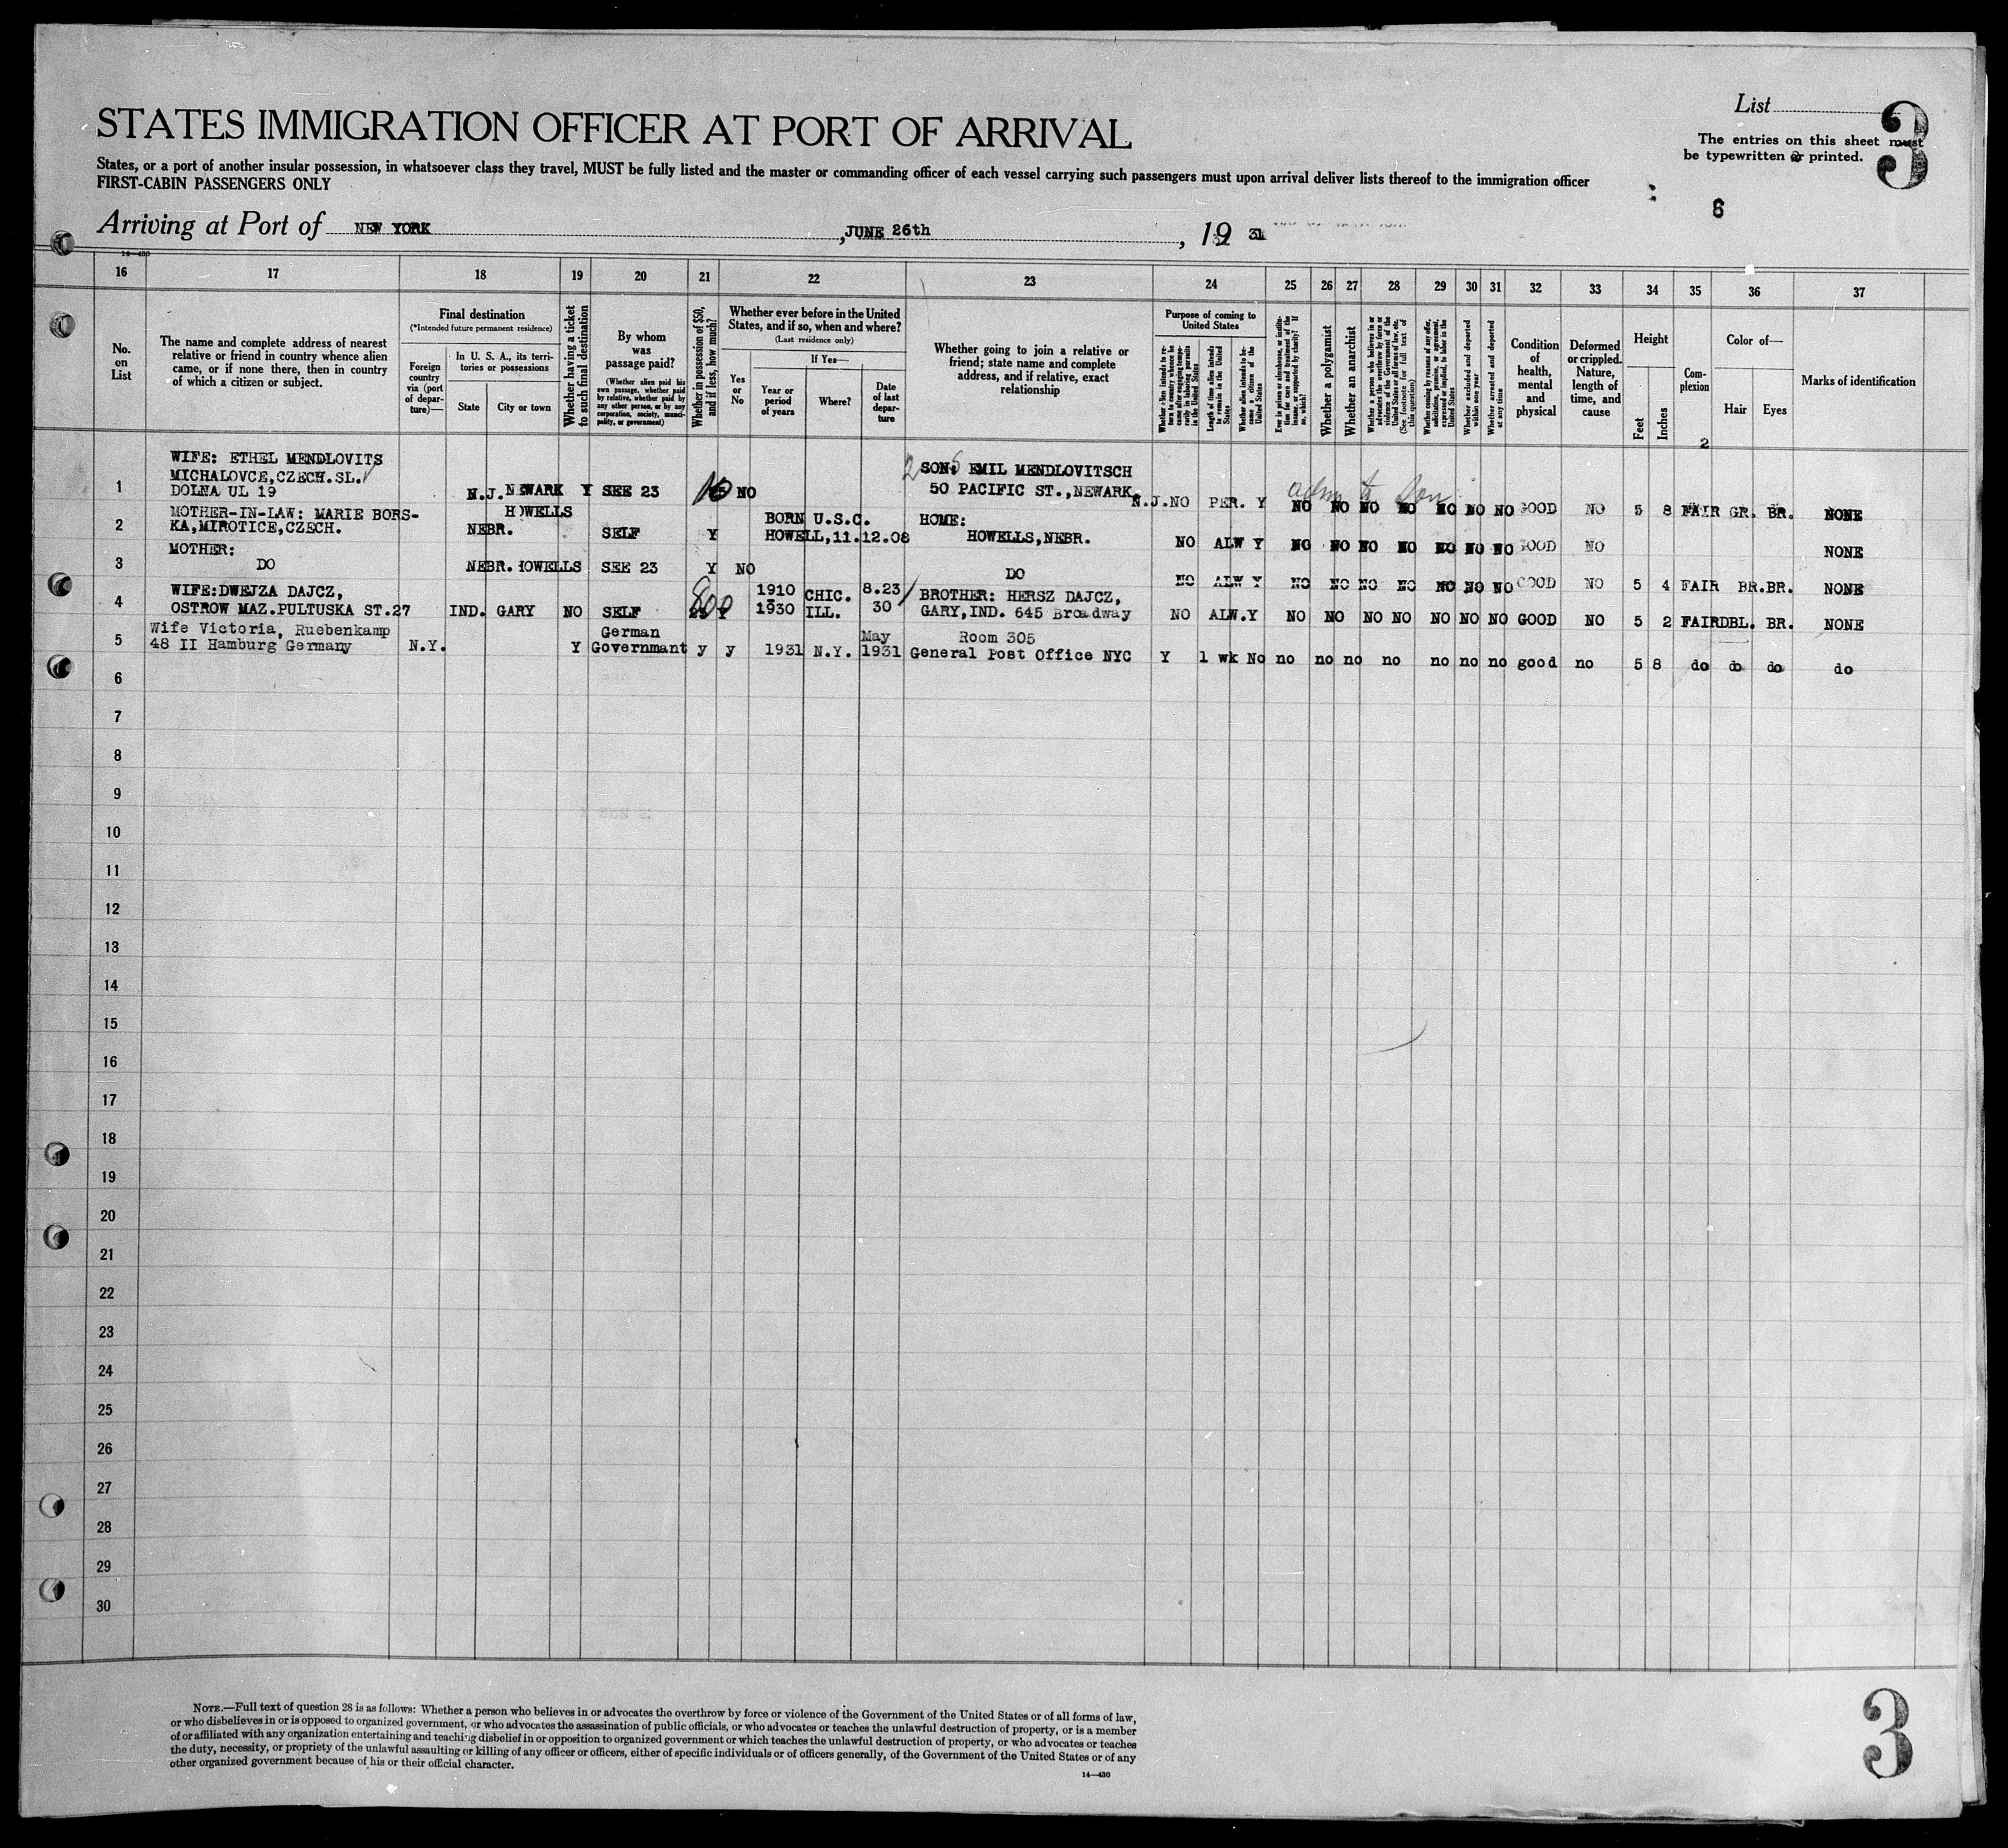 List
3
STATES IMMIGRATION OFFICER AT PORT OF ARRIVAL
The entries on this sheet must
be typewritten or printed.
States, or a port of another insular possession, in whatsoever class they travel, MUST be fully listed and the master or commanding officer of each vessel carrying such passengers must upon arrival deliver lists thereof to the immigration officer
FIRST-CABIN PASSENGERS ONLY
6
Arriving at Port of NEW YORK, JUNE 26th, 19 31
14—430
16 17 18 19 20 21 22 23 24 25 26 27 28 29 30 31 32 33 34 35 36 37
No. on List
The name and complete address of nearest
relative or friend in country whence alien
came, or if none there, then in country
of which a citizen or subject.
Final destination
(*Intended future permanent residence)
Foreign country via (port of departure)—
In U. S. A., its territories or possessions
State
City or town
Whether having a ticket to such final destination
By whom was passage paid?
(Whether alien paid his own passage, whether paid by relative, whether paid by any other person, or by any corporation, society, municipality, or government)
Whether in possession of $50, and if less, how much?
Whether ever before in the United States, and if so, when and where?
(Last residence only)
Yes or No
If Yes—
Year or period of years
Where?
Date of last departure
Whether going to join a relative or
friend; state name and complete
address, and if relative, exact
relationship
Purpose of coming to United States
Whether alien intends to return to country whence he came after engaging temporarily in laboring pursuits in the United States
Length of time alien intends to remain in the United States
Whether alien intends to become a citizen of the United States
Ever in prison or almshouse, or institution for care and treatment of the insane, or supported by charity? If so, which?
Whether a polygamist
Whether an anarchist
Whether a person who believes in or advocates the overthrow by force or violence of the Government of the United States or all forms of law, etc. (See footnote for full text of this question)
Whether coming by reason of any offer, solicitation, promise, or agreement, expressed or implied, to labor in the United States
Whether excluded and deported within one year
Whether arrested and deported at any time
Condition of health, mental and physical
Deformed or crippled. Nature, length of time, and cause
Height
Feet
Inches
Complexion
Color of—
Hair
Eyes
Marks of identification
2
WIFE: ETHEL MENDLOVITS
MICHALOVCE,CZECH.SL.
1 DOLNA UL 19 N.J. NEWARK Y SEE 23 NO
2 SONS EMIL MENDLOVITSCH
50 PACIFIC ST.,NEWARK,
N.J. NO PER. Y NO NO NO NO NO NO NO GOOD NO 5 8 FAIR GR. BR. NONE
adm to Son
2 MOTHER-IN-LAW: MARIE BORS-
KA,MIROTICE,CZECH. NEBR. HOWELLS SELF Y
BORN U.S.C.
HOWELL,11.12.08
HOME:
HOWELLS,NEBR. NO ALW Y NO NO NO NO NO NO NO GOOD NO NONE
3 MOTHER:
DO NEBR. HOWELLS SEE 23 Y NO DO NO ALW Y NO NO NO NO NO NO NO GOOD NO 5 4 FAIR BR. BR. NONE
4 WIFE:DWEJZA DAJCZ,
OSTROW MAZ.PULTUSKA ST.27 IND. GARY NO SELF 200 Y
1910 - 1930 CHIC. ILL. 8.23 30
BROTHER: HERSZ DAJCZ,
GARY,IND. 645 Broadway NO ALW. Y NO NO NO NO NO NO NO GOOD NO 5 2 FAIR DBL. BR. NONE
5 Wife Victoria, Ruebenkamp
48 II Hamburg Germany N.Y. Y German Governmant y y 1931 N.Y. May 1931
Room 305
General Post Office NYC Y 1 wk No no no no no no no no good no 5 8 do do do do
6
7
8
9
10
11
12
13
14
15
16
17
18
19
20
21
22
23
24
25
26
27
28
29
30
NOTE.—Full text of question 28 is as follows: Whether a person who believes in or advocates the overthrow by force or violence of the Government of the United States or of all forms of law,
or who disbelieves in or is opposed to organized government, or who advocates the assassination of public officials, or who advocates or teaches the unlawful destruction of property, or is a member
of or affiliated with any organization entertaining and teaching disbelief in or opposition to organized government or which teaches the unlawful destruction of property, or who advocates or teaches
the duty, necessity, or propriety of the unlawful assaulting or killing of any officer or officers, either of specific individuals or of officers generally, of the Government of the United States or of any
other organized government because of his or their official character.
14—430
3